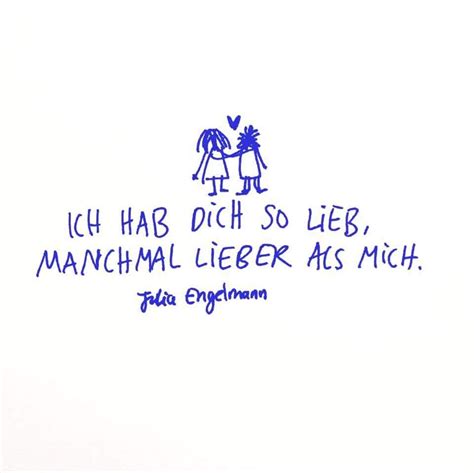 ICH HAB DICH SO LIEB,
MANCHMAL LIEBER ALS MICH.
Julia Engelmann